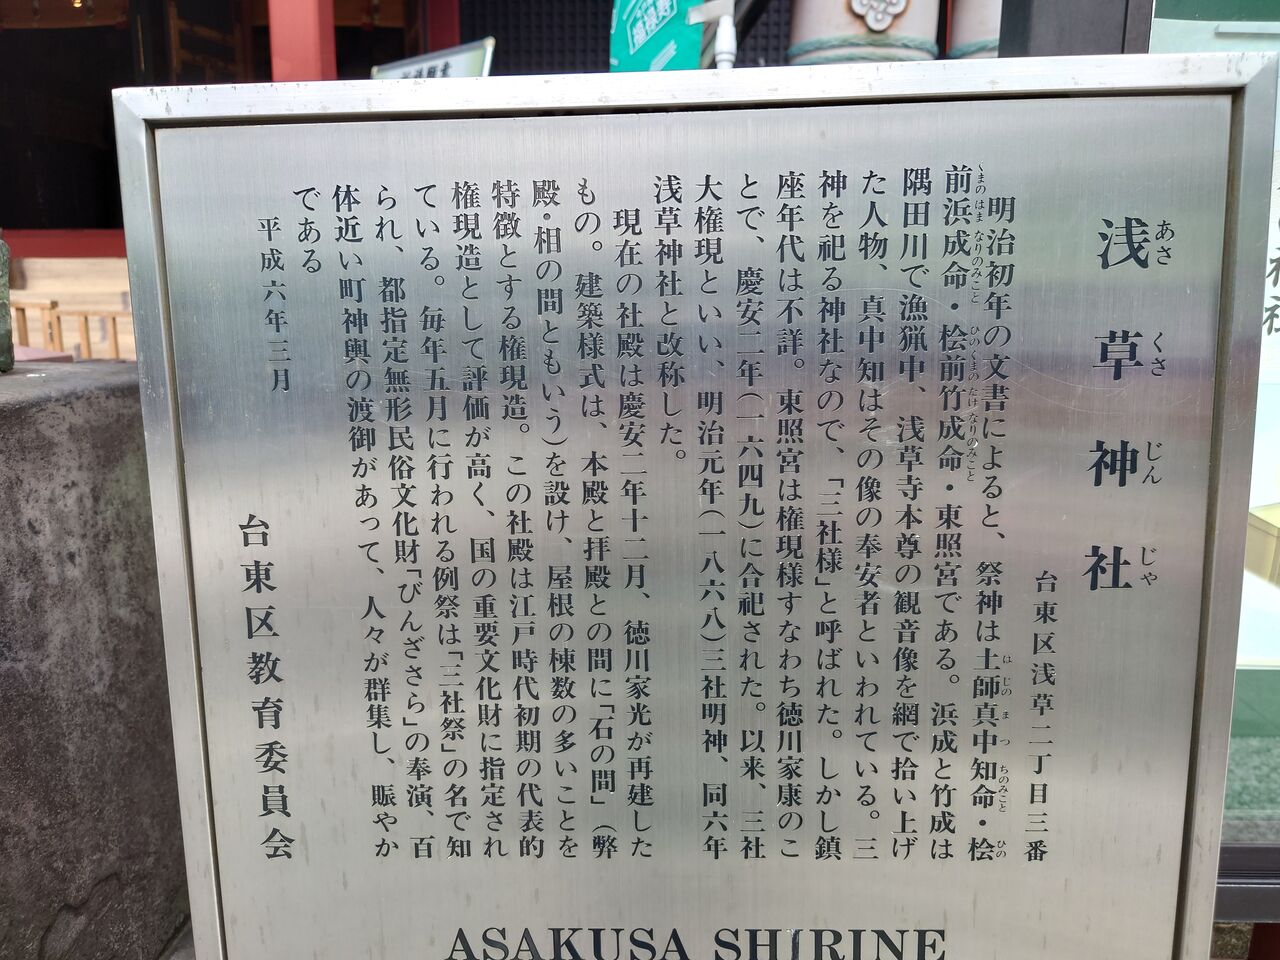 浅草神社
あさくさじんじゃ
台東区浅草二丁目三番
明治初年の文書によると、祭神は土師真中知命・桧
はじのまつちのみこと ひの
前浜成命・桧前竹成命・東照宮である。浜成と竹成は
くまのはまなりのみこと ひのくまのたけなりのみこと
隅田川で漁猟中、浅草寺本尊の観音像を網で拾い上げ
た人物、真中知はその像の奉安者といわれている。三
神を祀る神社なので、「三社様」と呼ばれた。しかし鎮
座年代は不詳。東照宮は権現様すなわち徳川家康のこ
とで、慶安二年(一六四九)に合祀された。以来、三社
大権現といい、明治元年(一八六八)三社明神、同六年
浅草神社と改称した。
現在の社殿は慶安二年十二月、徳川家光が再建した
もの。建築様式は、本殿と拝殿との間に「石の間」(弊
殿・相の間ともいう)を設け、屋根の棟数の多いことを
特徴とする権現造。この社殿は江戸時代初期の代表的
権現造として評価が高く、国の重要文化財に指定され
ている。毎年五月に行われる例祭は「三社祭」の名で知
られ、都指定無形民俗文化財「びんざさら」の奉演、百
体近い町神輿の渡御があって、人々が群集し、賑やか
である
平成六年三月
台東区教育委員会
ASAKUSA SHIRINE